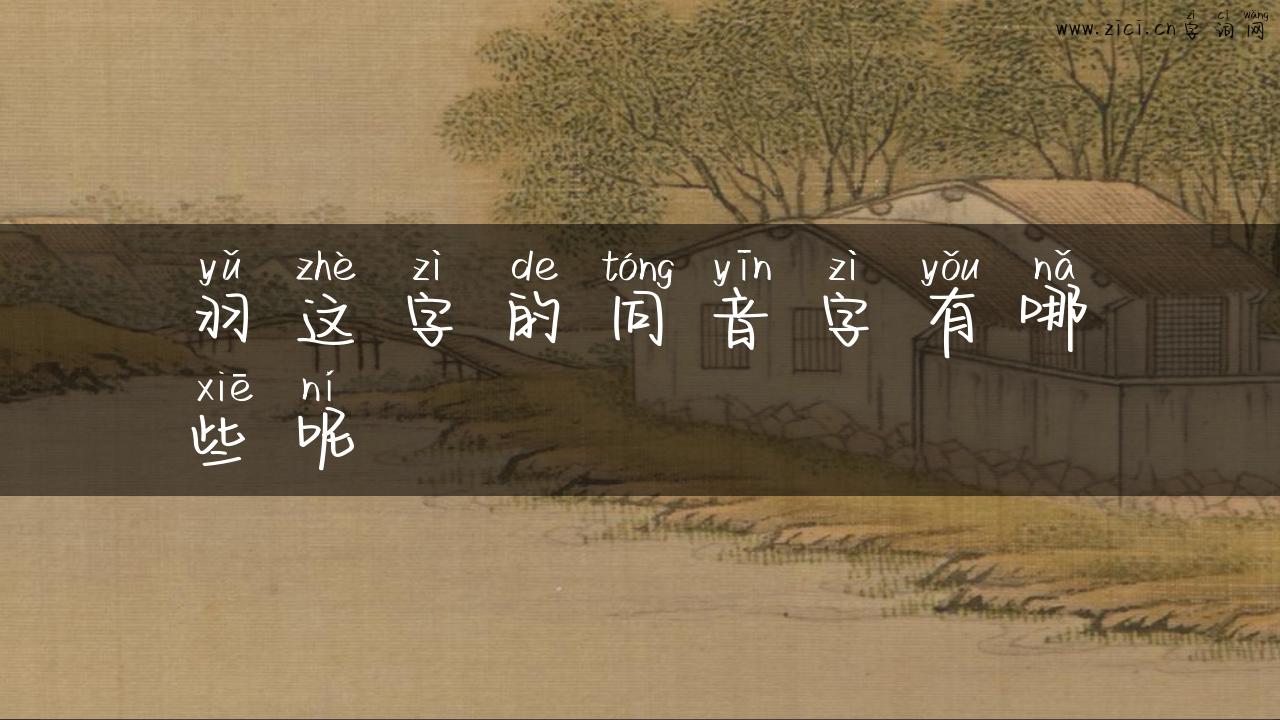 zì cí wǎng
www.zici.cn字词网
yǔ zhè zì de tóng yīn zì yǒu nǎ
羽这字的同音字有哪
xiē ní
些呢